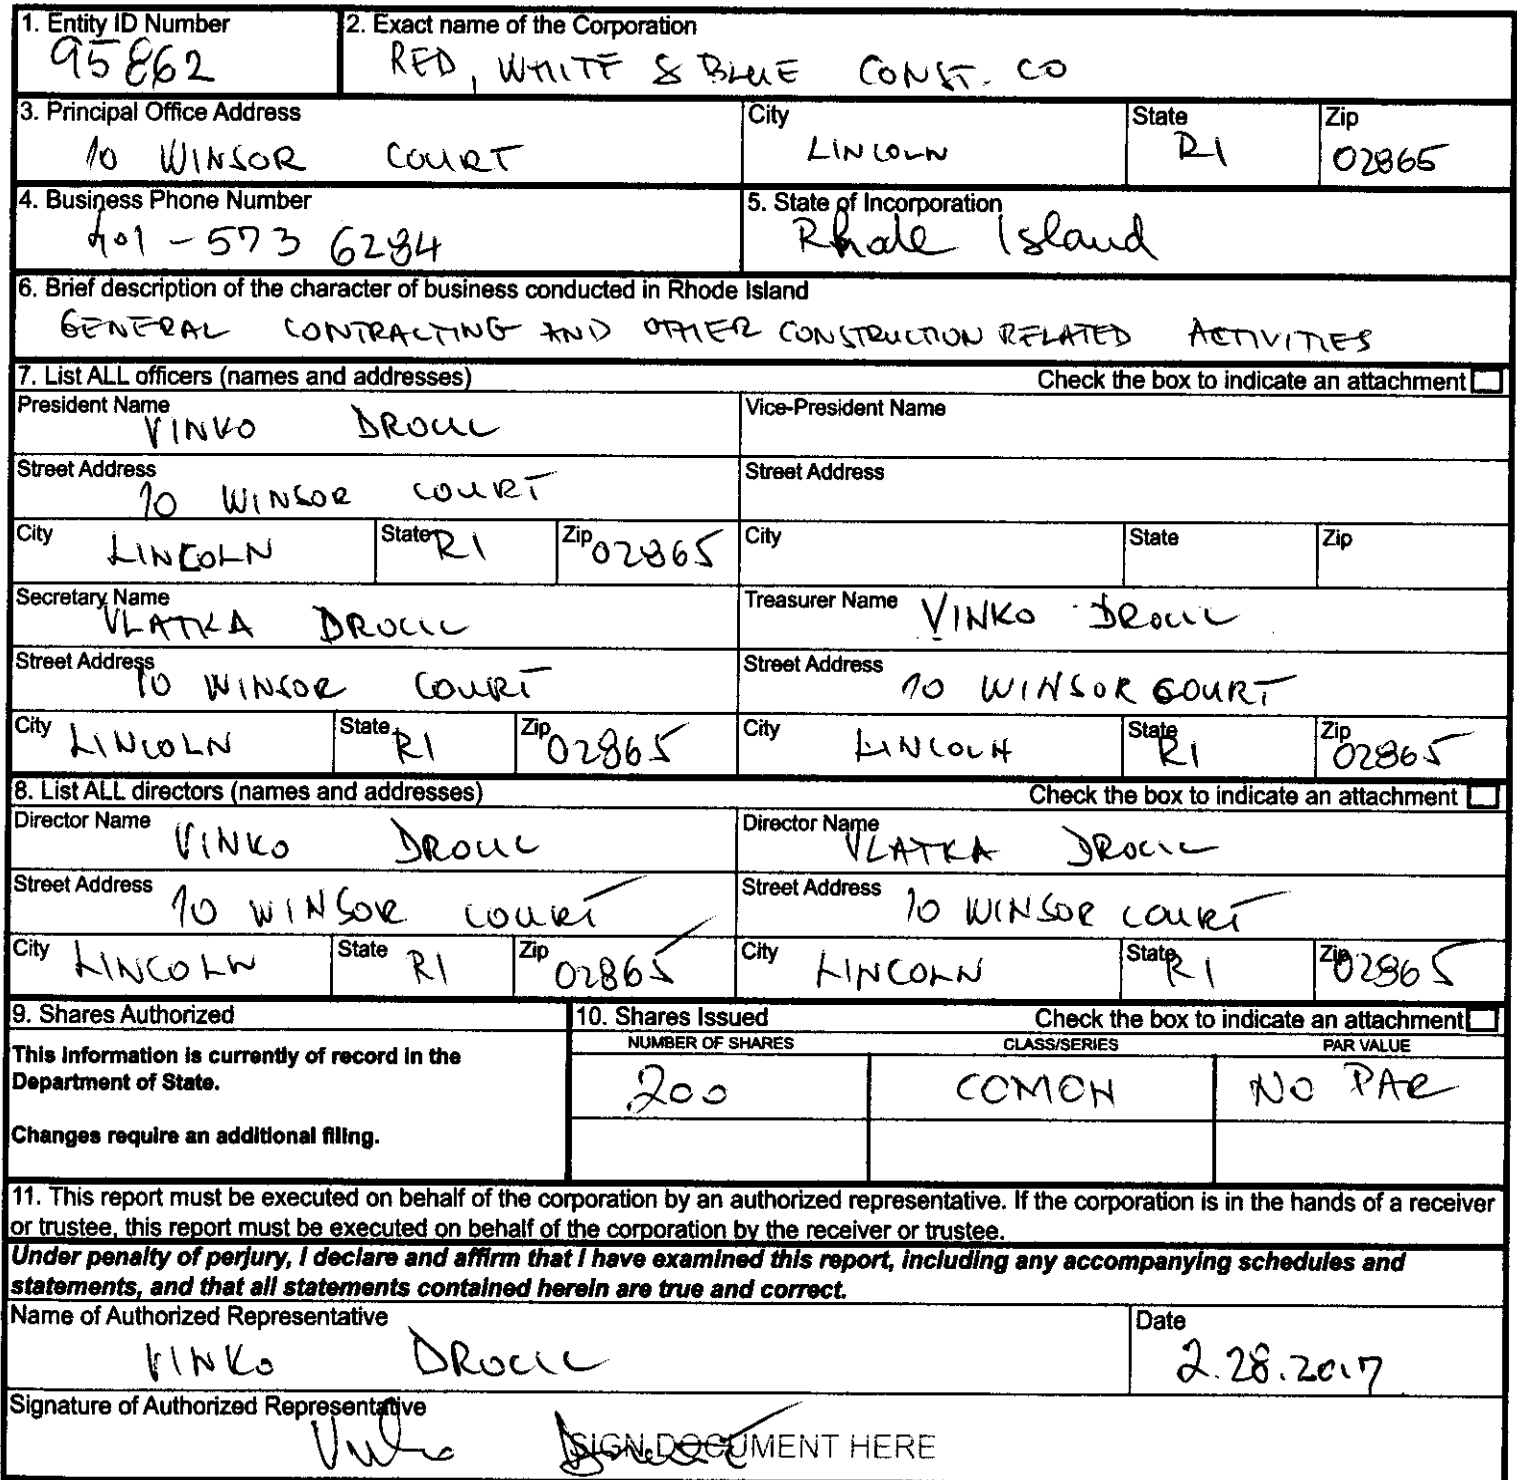 1. Entity ID Number
95862
2. Exact name of the Corporation
RED, WHITE & BLUE CONST. CO
3. Principal Office Address
10 WINSOR COURT
City
LINCOLN
State
RI
Zip
02865
4. Business Phone Number
401-573 6284
5. State of Incorporation
Rhode Island
6. Brief description of the character of business conducted in Rhode Island
GENERAL CONTRACTING AND OTHER CONSTRUCTION RELATED ACTIVITIES
7. List ALL officers (names and addresses) Check the box to indicate an attachment
President Name
VINKO DROCIC
Vice-President Name
Street Address
10 WINSOR COURT
Street Address
City
LINCOLN
State
RI
Zip
02865
City
State
Zip
Secretary Name
VLATKA DROCIC
Treasurer Name
VINKO DROCIC
Street Address
10 WINSOR COURT
Street Address
10 WINSOR COURT
City
LINCOLN
State
RI
Zip
02865
City
LINCOLN
State
RI
Zip
02865
8. List ALL directors (names and addresses) Check the box to indicate an attachment
Director Name
VINKO DROCIC
Director Name
VLATKA DROCIC
Street Address
10 WINSOR COURT
Street Address
10 WINSOR COURT
City
LINCOLN
State
RI
Zip
02865
City
LINCOLN
State
RI
Zip
02865
9. Shares Authorized
This information is currently of record in the
Department of State.
Changes require an additional filing.
10. Shares Issued Check the box to indicate an attachment
NUMBER OF SHARES CLASS/SERIES PAR VALUE
200 COMON NO PAR
11. This report must be executed on behalf of the corporation by an authorized representative. If the corporation is in the hands of a receiver
or trustee, this report must be executed on behalf of the corporation by the receiver or trustee.
Under penalty of perjury, I declare and affirm that I have examined this report, including any accompanying schedules and
statements, and that all statements contained herein are true and correct.
Name of Authorized Representative
VINKO DROCIC
Date
2.28.2017
Signature of Authorized Representative
SIGN DOCUMENT HERE